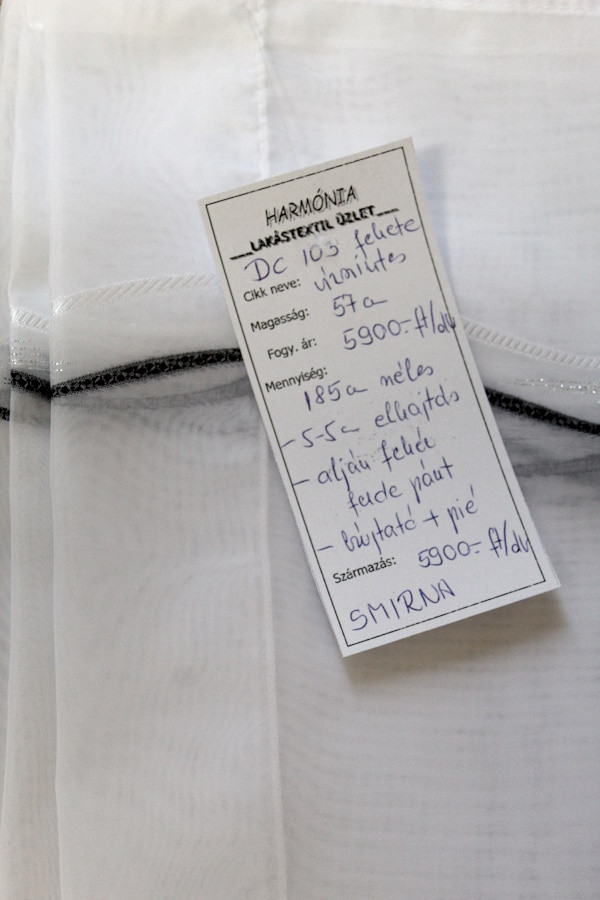 HARMÓNIA
LAKÁSTEXTIL ÜZLET
DC 103 fekete
Cikk neve: vízmintás
Magasság: 57 cm
Fogy. ár: 5900.- ft/db
Mennyiség:
185 cm széles
- 5-5 cm elhajtás
- alján fehér
fekete pánt
- bújtató + pié
Származás: 5900.- ft/db
SMIRNA